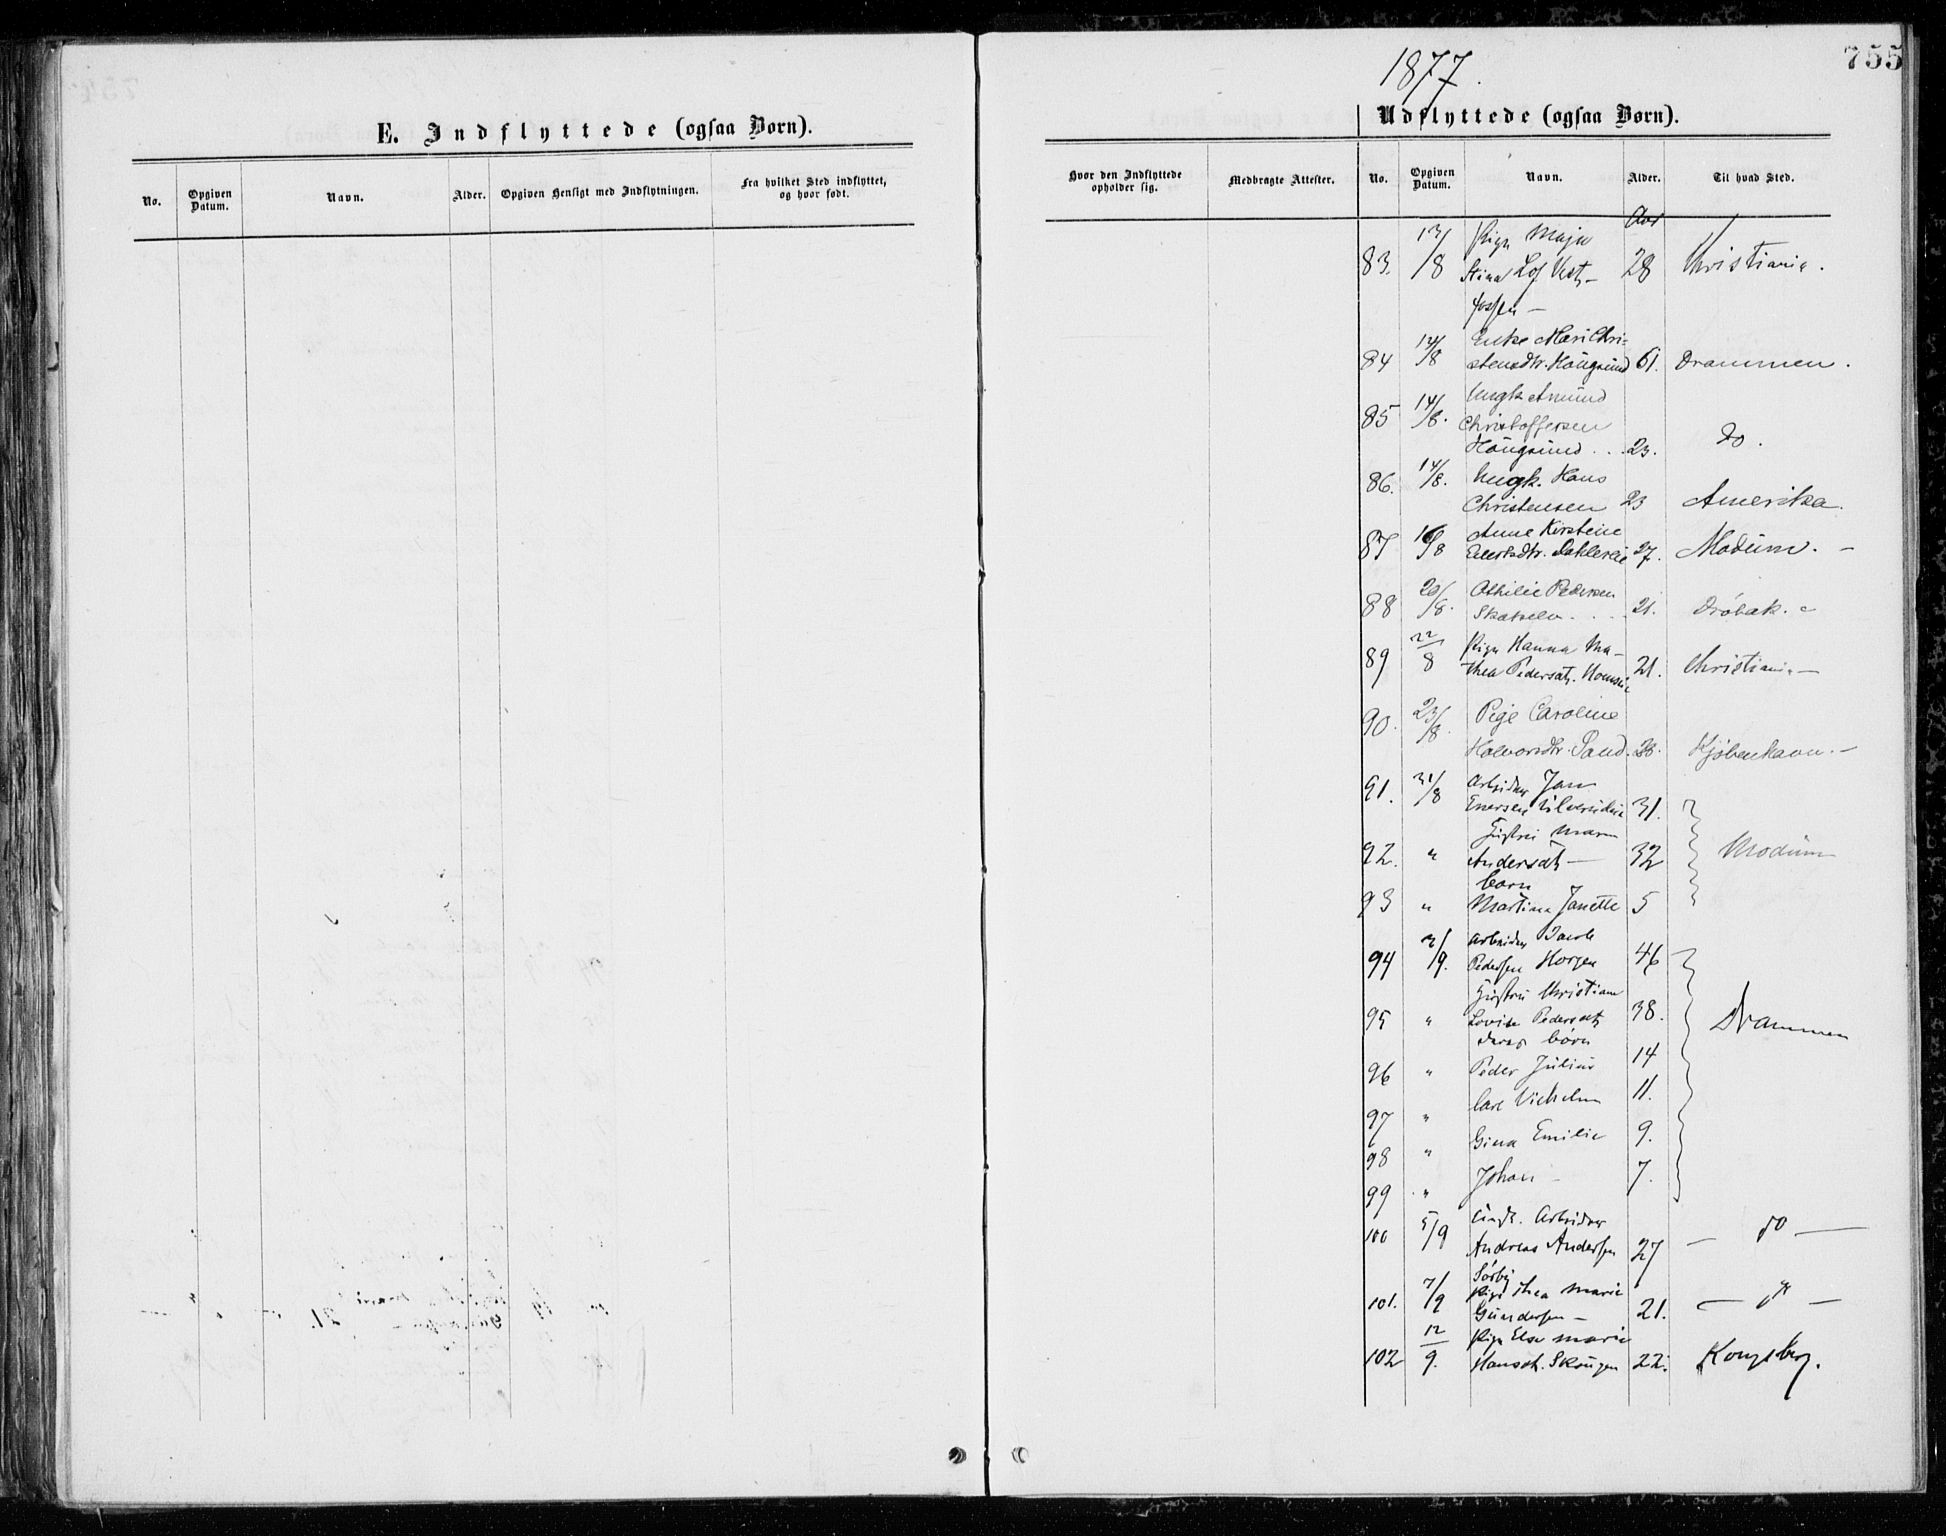 755
1877.
E. Indflyttede (ogsaa Børn).
No.
Opgiven Datum.
Navn.
Alder.
Opgiven Hensigt med Indflytningen.
Fra hvilket Sted indflyttet, og hvor født.
Udflyttede (ogsaa Børn).
Hvor den Indflyttede opholder sig.
Medbragte Attester.
No.
Opgiven Datum.
Navn.
Alder.
Til hvad Sted.
Aar
83. 13/8 Pige Maja
Stina Lof Vest- 28 Christiania.
fossen -
84 14/8 Enke Mari Chri-
stensdtr. Hougsund 61. Drammen.
85 14/8. Ungk Amund
Christoffersen
Hougsund . . . 23. Do.
86. 14/8. Ungk. Hans
Christensen 23 Amerika.
87 16/8 Anne Kirstine
Evertsdtr. 27. Modum. -
88 20/8. Othilie Pedersen
Skotselv . . . 21. Drøbak.
89 22/8 Pige Hanna Ma-
thea Pedersdtr. 21. Christiania -
90. 23/8. Pige Caroline
Halvorsdtr. Sand. 28. Kjøbenhavn. -
91. 31/8 Arbeider Jan
Enersen 31.
Hustru Maren
92. " Andersdtr - 32 Modum
barn
93 " Martina Janette 5
94 3/9. Arbeider Jacob
Pedersen Horgen 46
Hustru Christiane
95 " Lovise Pedersdtr 38. Drammen
deres børn
96 " Peder Julius 14
97 " Carl Vilhelm 11.
98 " Gina Emilie 9.
99 " Johan - 7.
100 5/9 Ungk. Arbeider
Andreas Andersen 27 - do -
Sørby
101. 7/9 Pige Thea Marie
Gundersen - 21. - do -
102 12/9. Pige Else Marie
Hansdt. Skougen 22. Kongsberg.